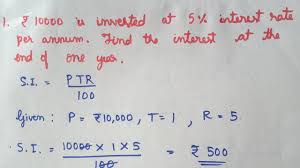 1. ₹ 10000 is invested at 5% interest rate
per annum. Find the interest at the
end of one year.
S.I. = PTR / 100
Given : P = ₹10,000 , T = 1 , R = 5
S.I. = 10000 × 1 × 5 / 100 = ₹ 500